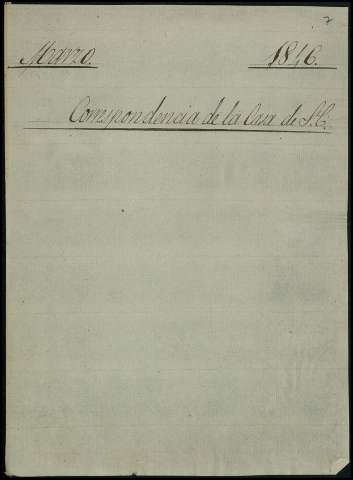 7
Marzo. 1846.
Correspondencia de la Casa de S.E.